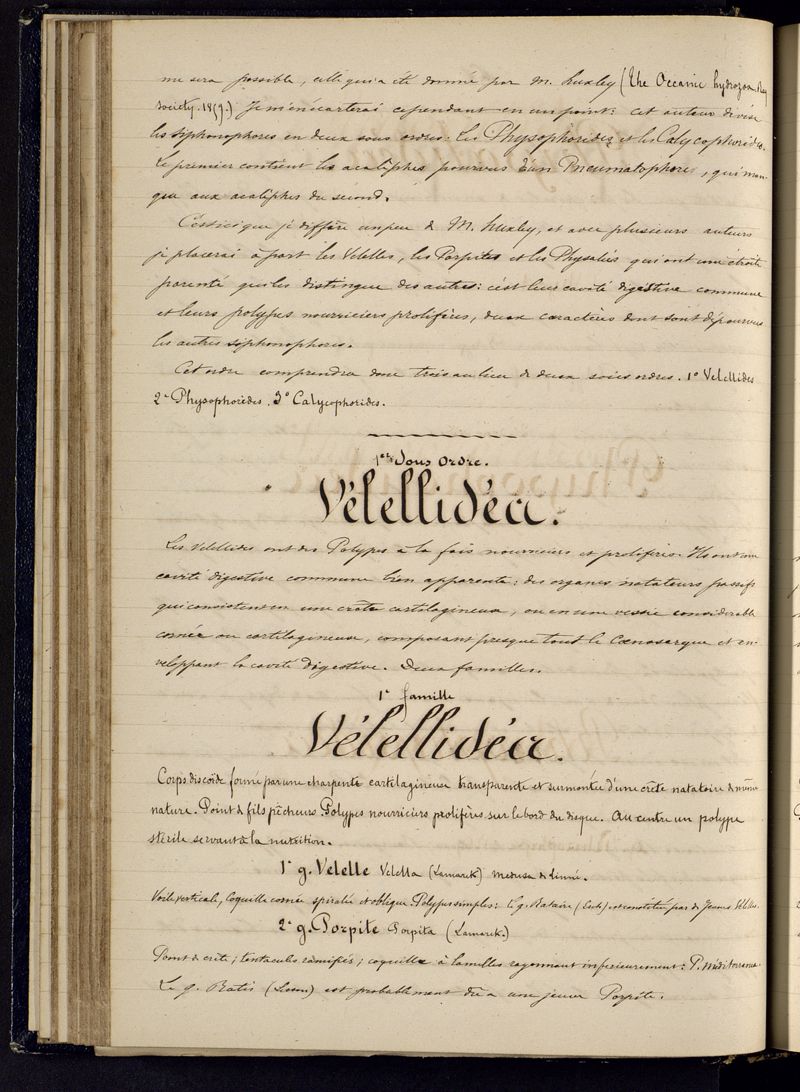 me sera possible, celle qui a été donnée par M. Huxley (The Oceanic hydrozoa Ray
Society. 1859.) Je m'en écarterai cependant en un point: cet auteur divise
les Siphonophores en deux sous ordres. Les Physophoridez et les Calycophoridez.
Le premier contient les acalèphes pourvus d'un Pneumatophore, qui man-
que aux acalèphes du second.
C'est ici que je diffère un peu de M. Huxley, et avec plusieurs auteurs
je placerai à part les Velelles, les Porpites et les Physalies qui ont une étroite
parenté qui les distingue des autres: c'est leur cavité digestive commune
et leurs polypes nourriciers prolifères, deux caractères dont sont dépourvus
les autres siphonophores.
Cet ordre comprendra donc trois au lieu de deux sous ordres. 1º Velellides
2º Physophorides. 3º Calycophorides.
1er Sous Ordre.
Vélellidéa.
Les Velellides ont des Polypes à la fois nourriciers et prolifères. Ils ont une
cavité digestive commune bien apparente; des organes natateurs passifs
qui consistent en une crête cartilagineuse, ou en une vessie considérable
cornée ou cartilagineuse, composant presque tout le Cœnosarque et en-
veloppant la cavité digestive. Deux familles.
1e famille
Vélellidéa.
Corps discoïde formé par une charpente cartilagineuse transparente et surmontée d'une crête natatoire de même
nature. Point de fils pêcheurs. Polypes nourriciers prolifères sur le bord du disque. Au centre un polype
stérile servant à la nutrition.
1e g. Velelle Velella (Lamarck) Medusa de Linné.
Voile verticale, Coquille cornée spiralée et oblique. Polypes simples: le g. Rataire (Esch) est constitué par de Jeunes Vélelles.
2e g. Porpite Porpita (Lamarck.)
Point de crête; tentacules ramifiés; coquille à lamelles rayonnant inférieurement: P. Méditerranea.
Le g. Ratis (Lesson) est probablement dû à une jeune Porpite.